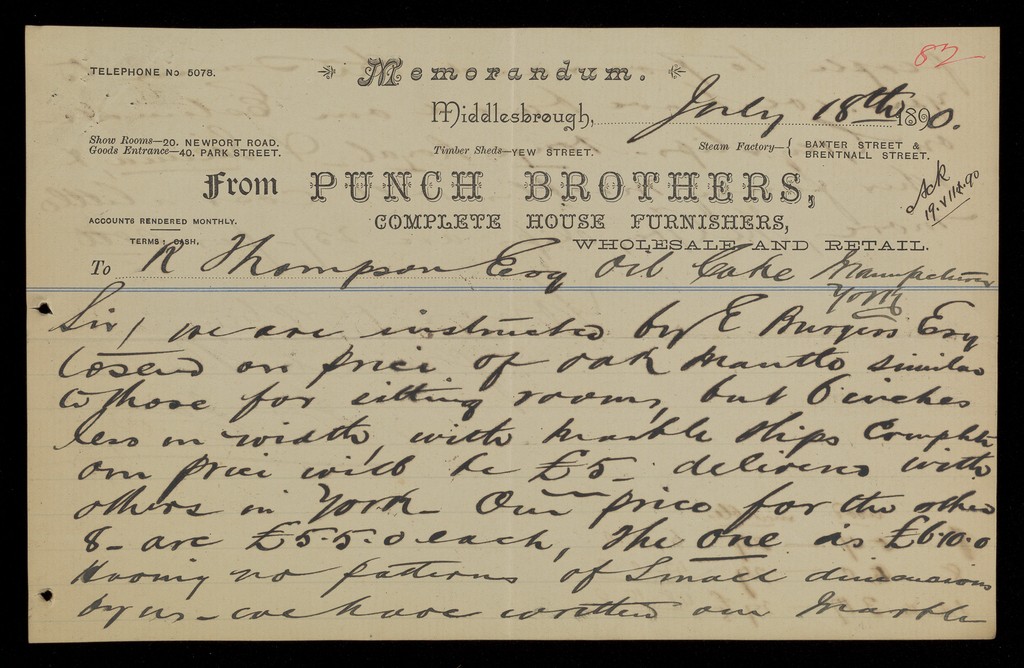 82
TELEPHONE No 5078.
Memorandum.
Middlesbrough, July 18th 1890.
Show Rooms—20. NEWPORT ROAD.
Goods Entrance—40. PARK STREET.
Timber Sheds—YEW STREET.
Steam Factory—{ BAXTER STREET &
BRENTNALL STREET.
From PUNCH BROTHERS,
Ack
19.VII.90
ACCOUNTS RENDERED MONTHLY.
COMPLETE HOUSE FURNISHERS,
TERMS: CASH.
WHOLESALE AND RETAIL.
To R Thompson Esq Oil Cake Manufacturer
York
Sir/ we are instructed by E Burgess Esq
to send our price of oak mantle similar
to those for sitting rooms, but 6 inches
less in width, with marble slips complete
our price will be £5 delivered with
others in York - Our price for the other
8 - are £5.5.0 each, the one is £6.10.0
Having no patterns of small dimensions
by us - we have written our Marble